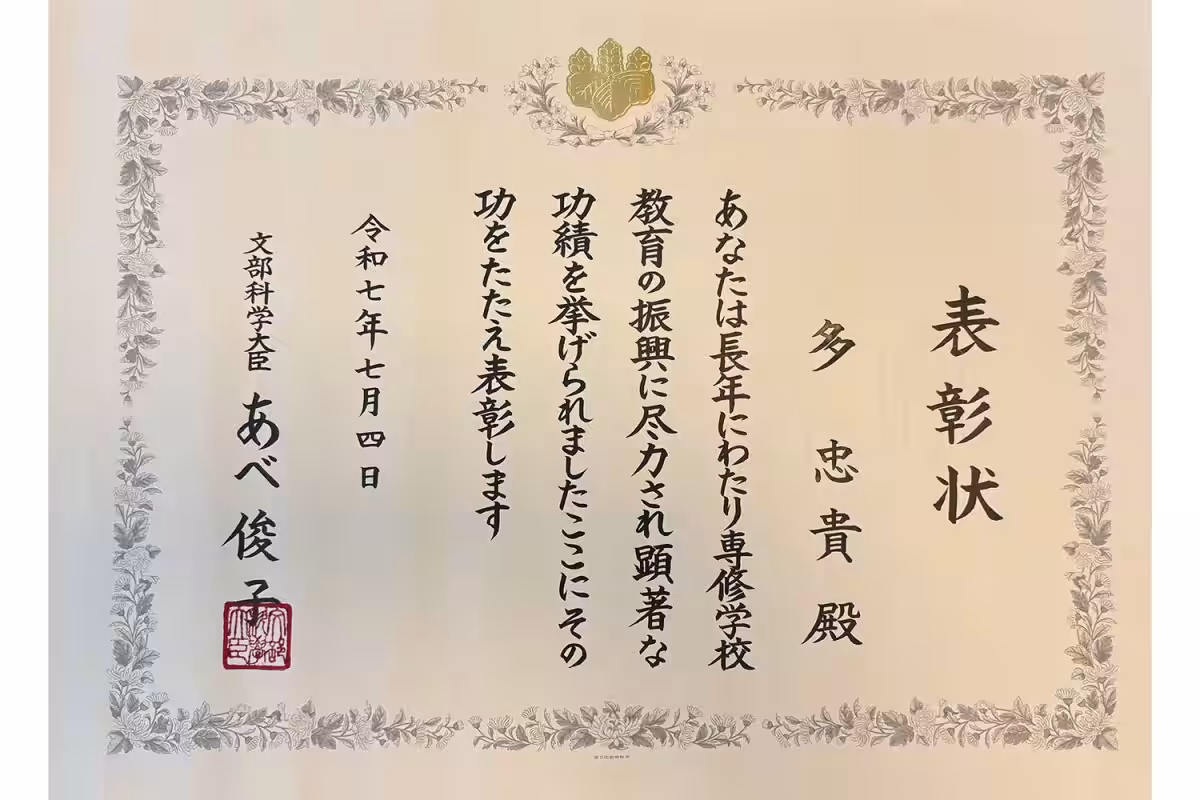 表彰状
多忠貴殿
あなたは長年にわたり専修学校
教育の振興に尽力され顕著な
功績を挙げられましたここにその
功をたたえ表彰します
令和七年七月四日
文部科学大臣 あべ俊子